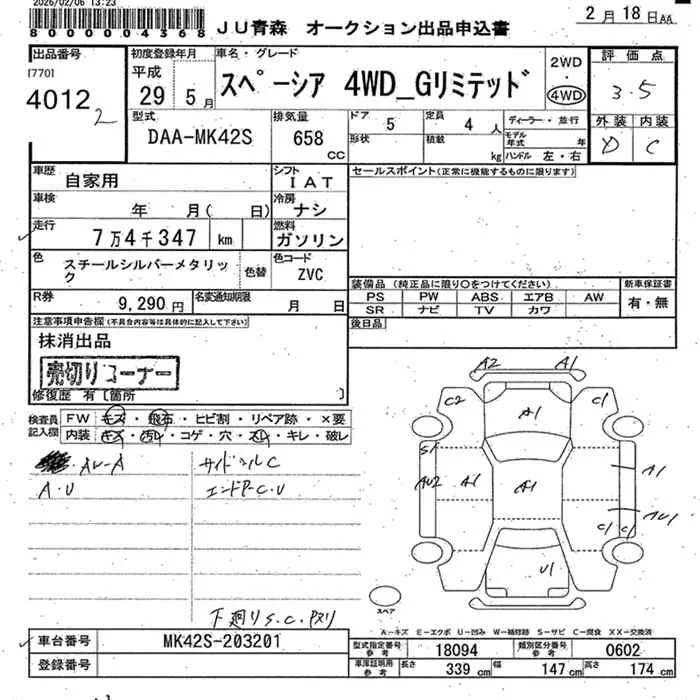 2026/02/06 13:23
80000004368
JU青森 オークション出品申込書
2月18日AA
出品番号
[770]
4012
2
初度登録年月
平成
29 5月
車名・グレード
スペーシア 4WD_Gリミテッド
2WD
・
4WD
評価点
3.5
外装 内装
D C
型式
DAA-MK42S
排気量
658
CC
ドア 5
定員 4 人
形状
積載
kg
ディーラー・並行
モデル年式 年
ハンドル 左・右
車歴
自家用
シフト
IAT
セールスポイント(正常に機能するものに限ります)
車検
年 月( 日)
冷房
ナシ
走行
7万4千347 km
燃料
ガソリン
色
スチールシルバーメタリック
色替
色コード
ZVC
装備品 (純正品に限り○をつけてください)
新車保証書
PS PW ABS エアB AW
SR ナビ TV カワ
有・無
R券
9,290円
名変通知期限
月 日
後日品
注意事項申告欄(不具合内容等は具体的に記入して下さい)
抹消出品
売切りコーナー
修復歴 有〔箇所 〕
検査員
記入欄
FW キズ・飛石・ヒビ割・リペア跡・×要
内装 キズ・汚レ・コゲ・穴・スレ・キレ・破レ
AU-A
サイドシルC
A・U
エンドP-C・U
下廻りS.C.
A2 A1
C2 C1
A1
S1
AU2 A1 A1 A1
AU1
C1 C1
U1
スペア
A-キズ E-エクボ U-凹み W-補修跡 S-サビ C-腐食 XX-交換済
車台番号
MK42S-203201
登録番号
型式指定番号
参考
18094
類別区分番号
参考
0602
車庫証明用
参考
長さ 339cm
幅 147cm
高さ 174cm